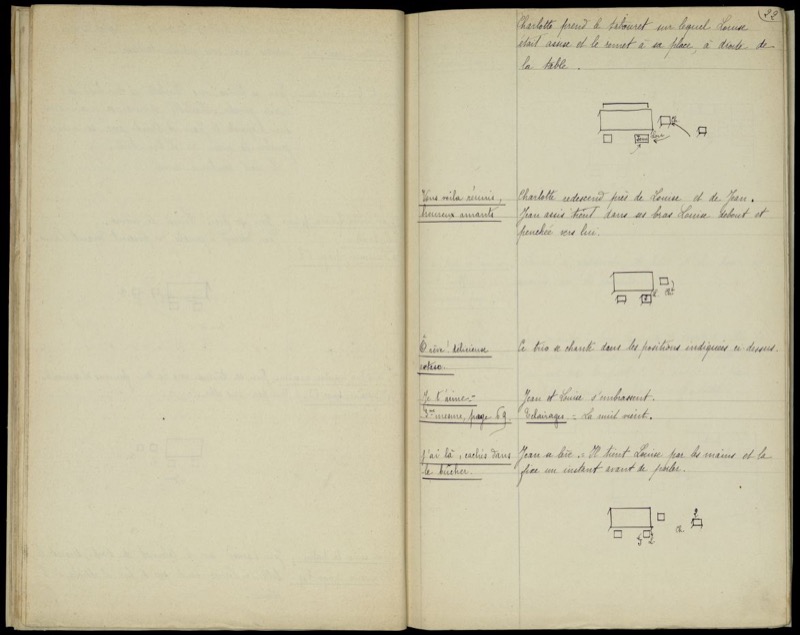 22
Charlotte prend le tabouret sur lequel Louise
était assise et le remet à sa place, à droite de
la table.
Vous voilà réunis,
heureux amants
Charlotte redescend près de Louise et de Jean.
Jean assis tient dans ses bras Louise debout et
penchée vers lui.
Ch.
O rêve! délicieuse
extase
Ce trio se chante dans les positions indiquées ci-dessus.
Je t'aime -
3me mesure, page 69
Jean et Louise s'embrassent.
Eclairages = La nuit vient.
j'ai là, cachés dans
le bûcher.
Jean se lève. Il tient Louise par les mains et la
fixe un instant avant de parler.
J L Ch.